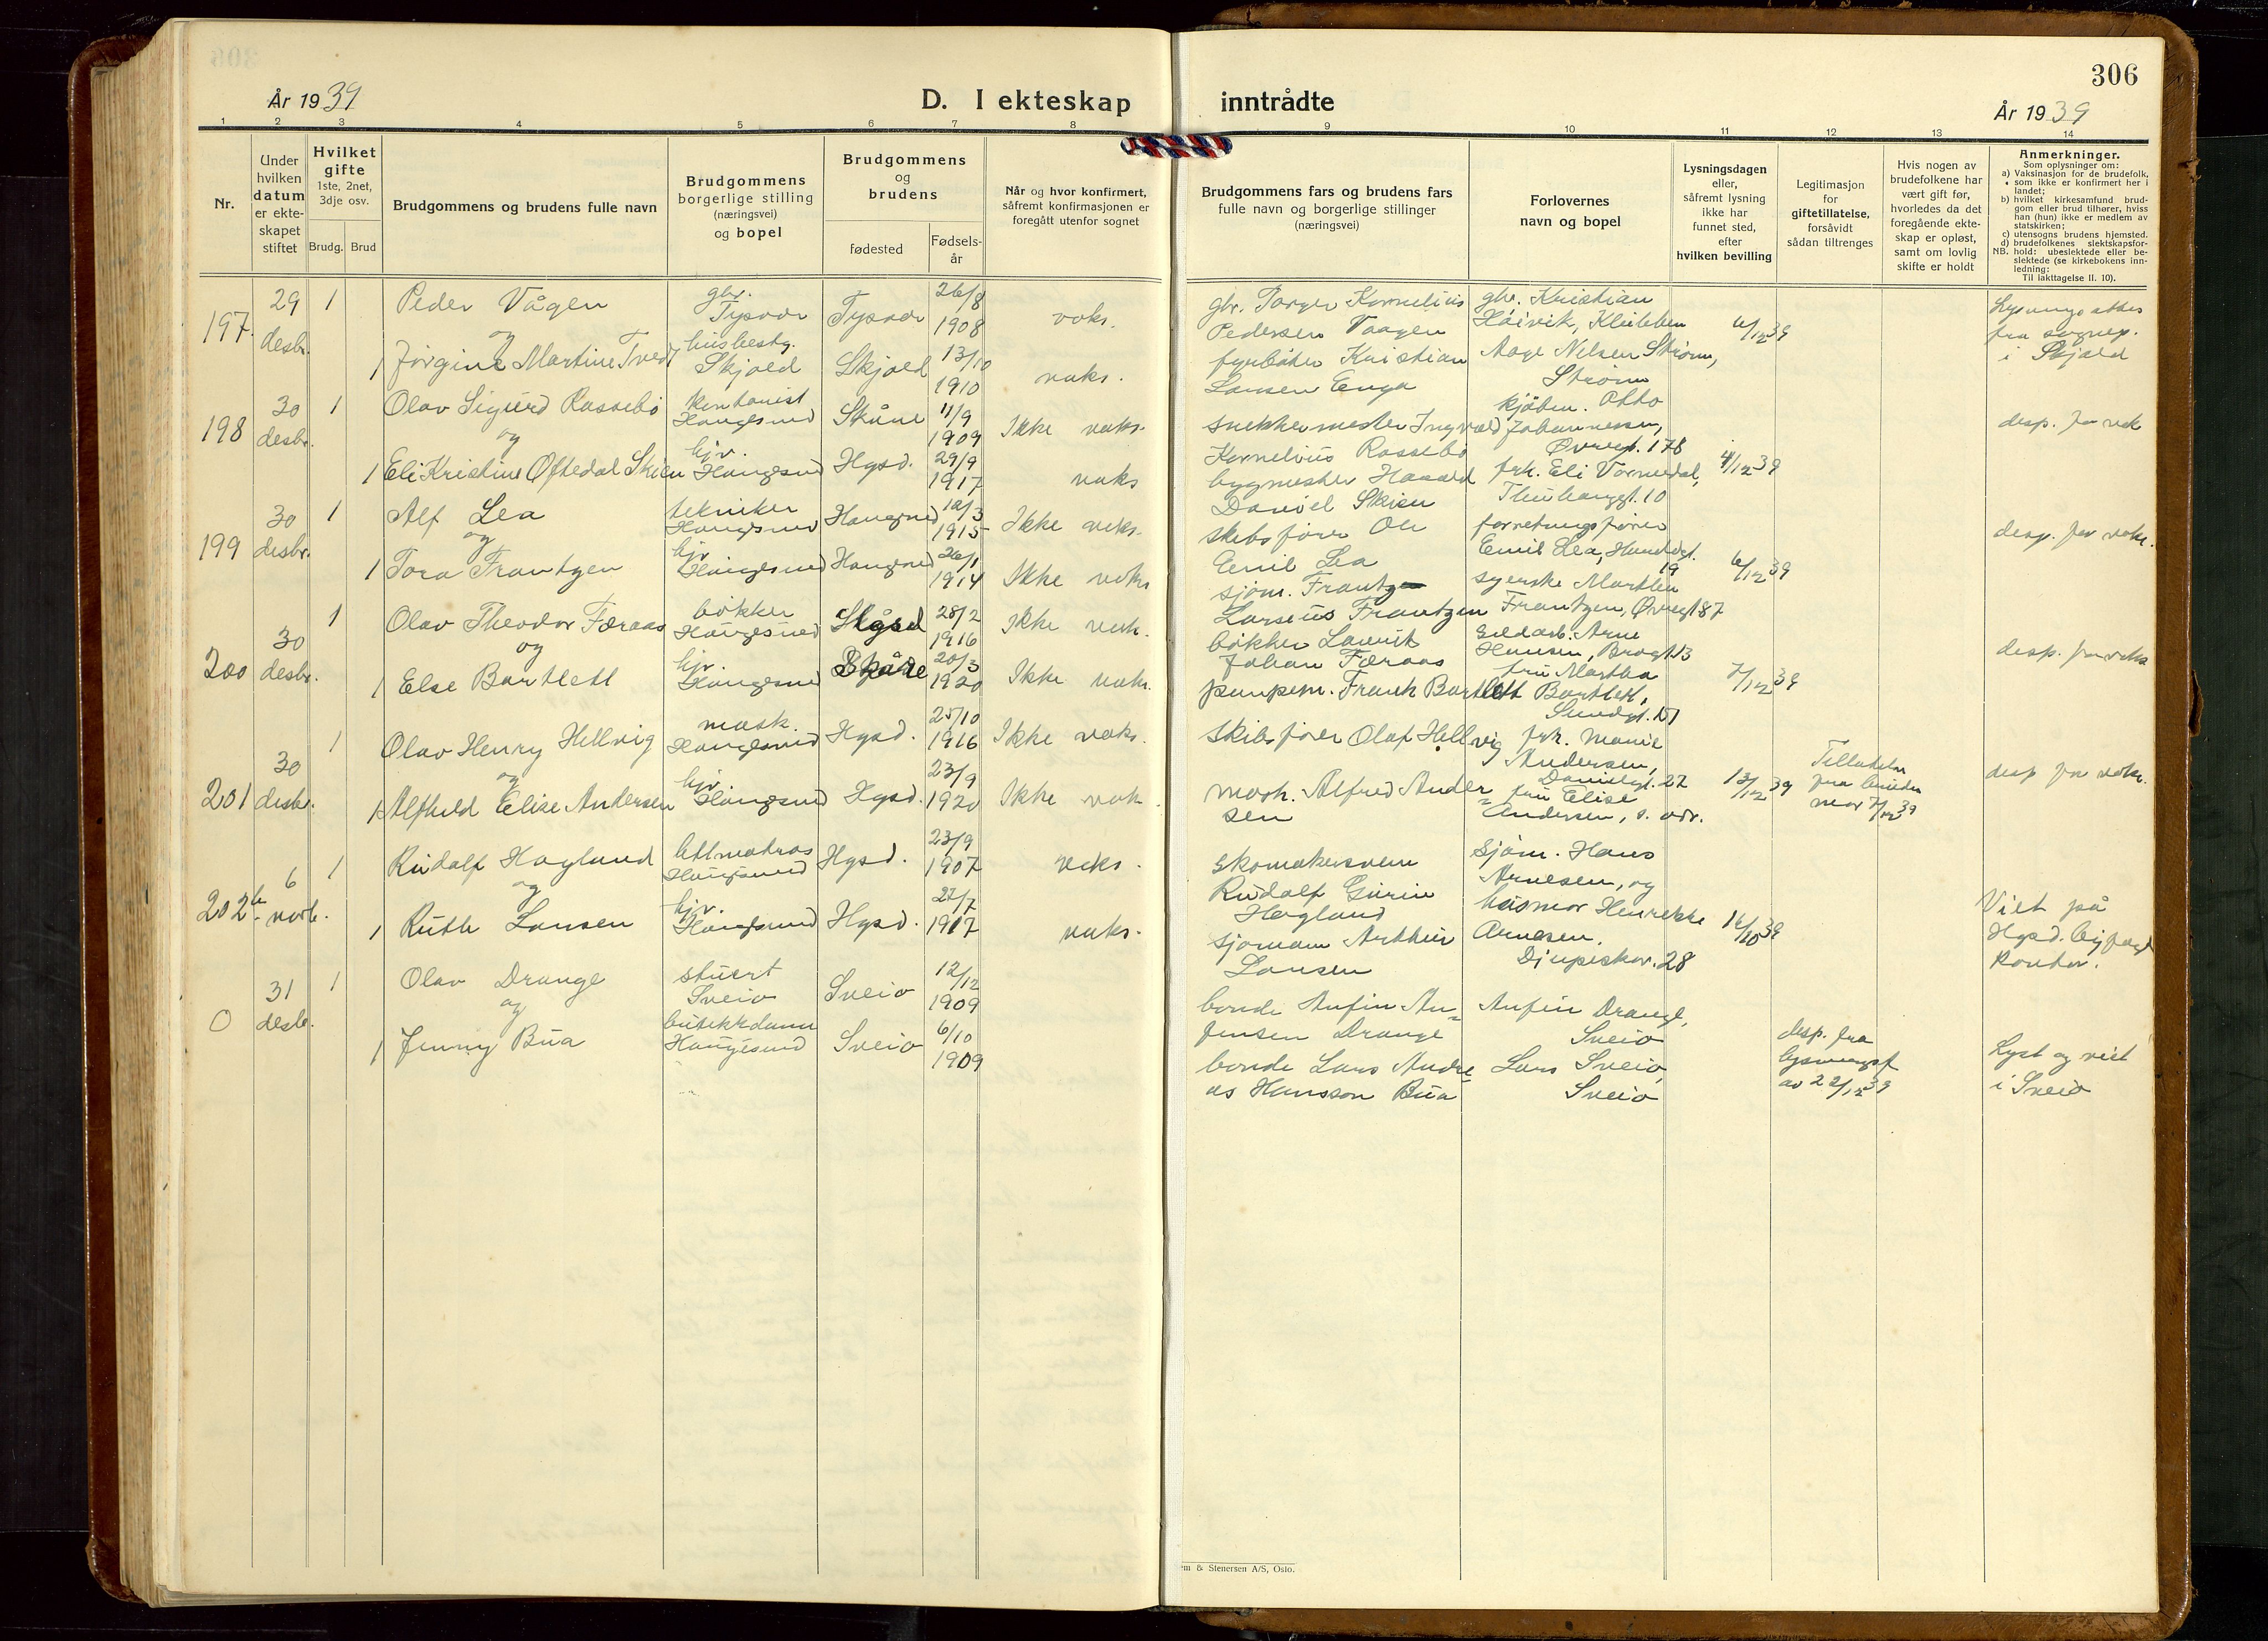 306
År 1939
D. I ekteskap inntrådte
År 1939
1 2 3 4 5 6 7 8 9 10 11 12 13 14
Nr.
Under hvilken datum er ekte-skapet stiftet
Hvilket gifte
1ste, 2net, 3dje osv.
Brudg. Brud
Brudgommens og brudens fulle navn
Brudgommens borgerlige stilling (næringsvei) og bopel
Brudgommens og brudens
fødested
Fødsels-år
Når og hvor konfirmert, såfremt konfirmasjonen er foregått utenfor sognet
Brudgommens fars og brudens fars fulle navn og borgerlige stillinger (næringsvei)
Forlovernes navn og bopel
Lysningsdagen eller, såfremt lysning ikke har funnet sted, efter hvilken bevilling
Legitimasjon for giftetillatelse, forsåvidt sådan tiltrenges
Hvis nogen av brudefolkene har vært gift før, hvorledes da det foregående ekte-skap er opløst, samt om lovlig skifte er holdt
Anmerkninger.
Som oplysninger om:
a) Vaksinasjon for de brudefolk, som ikke er konfirmert her i landet;
b) hvilket kirkesamfund brud-gom eller brud tilhører, hviss han (hun) ikke er medlem av statskirken;
c) utensogns brudens hjemsted.
d) brudefolkenes slektskapsfor-hold: ubeslektede eller be-slektede (se kirkebokens inn-ledning:
NB. Til iakttagelse II. 10).
197. 29 desbr. 1 Peder Vågen gbr. Tysvær Tysvær 26/8 1908 vaks.
og
1 Jørgine Martine Tvedt husbesty. Skjold Skjold 13/10 1910 vaks.
gbr. Torger Kornelius Pedersen Vaagen
fyrbøter Kristian Larsen Enga
gbr. Kristian Høivik,
Aage Nelsen Strøm, Strøm
6/12 39
Lysningsattes fra sognep. i Skjold
198 30 desbr. 1 Olav Sigurd Rossebø kontorist Haugesund Skåre 11/9 1909 Ikke vaks.
og
1 Eli Kristine Oftedal Skien hjv. Haugesund Hgsd. 29/9 1917 vaks
snekkermester Ingvald Kornelius Rossebø
bygmester Harald Daniel Skien
kjøbm. Otto Johannessen, Øvregt. 178
frk. Eli Vormedal, 10
4/12 39
desp. for vak
199 30 desbr. 1 Alf Lea tekniker Haugesund Haugesund 12/3 1915 Ikke vaks.
og
1 Tora Frantzen hjv. Haugesund Haugesund 26/1 1914 Ikke vaks
skibsfører Ole Emil Lea
sjøm. Frantz Larsenius Frantzen
forretningsfører Emil Lea, 19
syerske Marthe Frantzen, Øvregt 87
6/12 39
desp. for vaks.
200 30 desbr. 1 Olav Theodor Færaas bøkker Haugesund Hgsd 28/2 1916 Ikke vak.
og
1 Else Bartlett hjv. Haugesund Skåre 20/3 1920 Ikke vaks.
bøkker Laurit Johan Færaas
pumpem. Frank Bartlett
Arne Hansen,
fru Martha Bartlett, Sundgt. 151
7/12 39
desp. for vaks
201 30 desbr. 1 Olav Henry Hellvig mask. Haugesund Hgsd. 25/10 1916 Ikke vaks.
og
1 Alfhild Elise Andersen hjv. Haugesund Hgsd. 23/9 1920 Ikke vak.
Skibsfører Olaf Hellvig
mask. Alfred Andersen
frk. Marie Andersen, 22
fru Elise Andersen, s. adr.
13/12 39
Tilladelse fra brudens mor 7/12 39
desp for vaks.
202b. 6 novb. 1 Rudolf Hagland lettmatros Haugesund Hgsd. 23/9 1907 vaks.
og
1 Ruth Larsen hjv. Haugesund Hgsd. 22/7 1917 vaks.
skomakersvenn Rudolf Hagland
sjømann Arthur Larsen
Sjøm. Hans Arnesen, og
husmor Henrikke Arnesen. Djupeskar. 28
16/10 39
Viet på Hgsd. byfogd kontor.
0 31 desbr. 1 Olav Drange stuert Sveio Sveio 12/12 1909
og
1 Jenny Bua butikkdame Haugesund Sveio 6/10 1909
bonde Anfin Anfinsen Drange
bonde Lars Andreas Hansson Bua
Anfin Drange, Sveio
Lars Sveio, Sveio
desp. fra lysningsf av 22/12 39
Lyst og viet i Sveio
m & Stenersen A/S, Oslo.